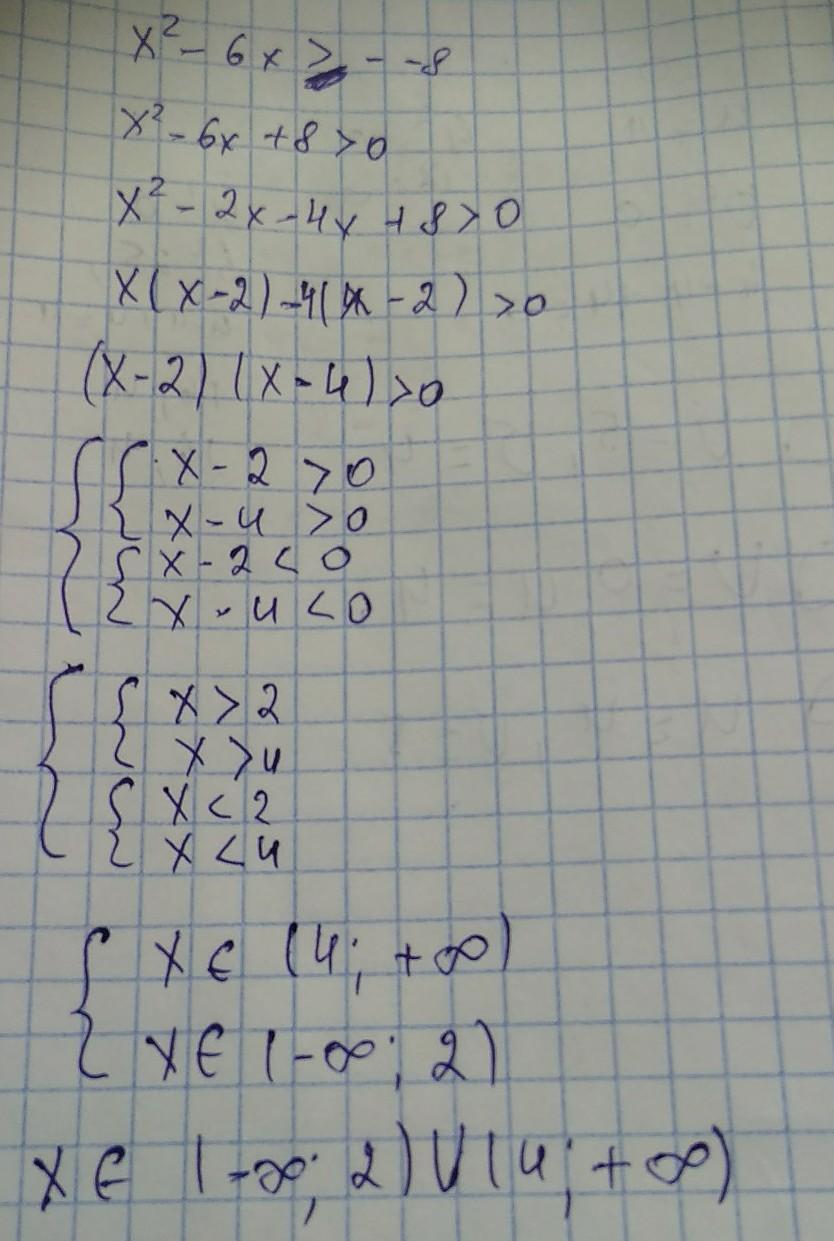 x² - 6x > - -8
x² - 6x + 8 > 0
x² - 2x - 4x + 8 > 0
x(x - 2) - 4(x - 2) > 0
(x - 2)(x - 4) > 0
{ { x - 2 > 0
x - 4 > 0
{ x - 2 < 0
x - 4 < 0
{ { x > 2
x > 4
{ x < 2
x < 4
{ x ∈ (4; +∞)
x ∈ (-∞; 2)
x ∈ (-∞; 2) ∪ (4; +∞)